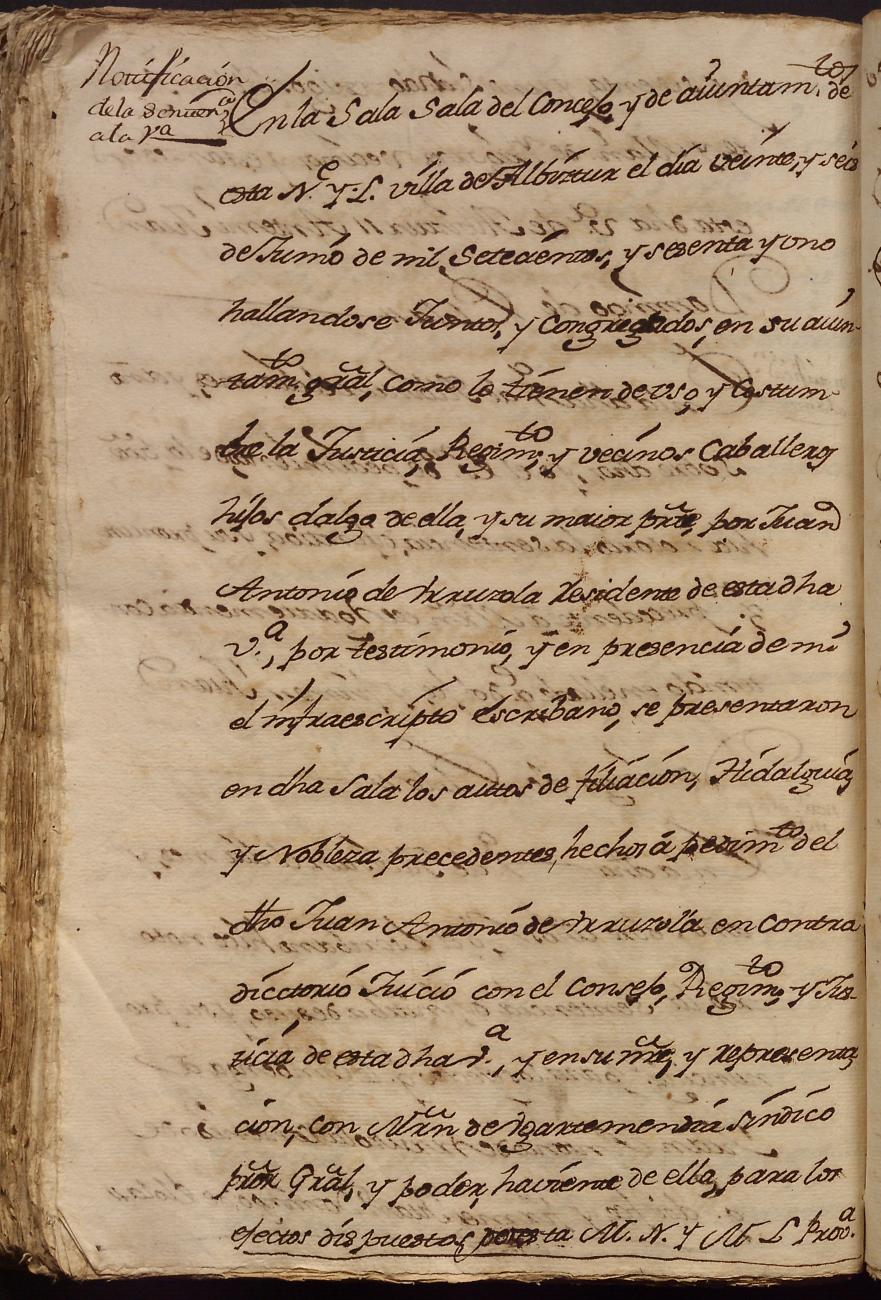 Notificación
de la Senten.ª
a la V.ª
En la Sala Sala del Concejo, y de aiuntam.to de
esta N.e y L. villa de Albiztur el dia veinte, y seis
de Junio de mil Setecientos, y sesenta y uno
hallandose Juntos, y Congregados, en su aiun-
tam.to gral, como lo tienen de uso, y Costum-
bre la Justicia, Regim.to, y vecinos Caballeros
hijos dalgo de ella, y su maior prte, por Juan
Antonio de Urruzola Residente de esta dha
v.ª, por testimonio, y en presencia de mi
el infraescripto escribano, se presentaron
en dha Sala los autos de filiación, Hidalguia,
y Nobleza precedentes, hechos á pedim.to del
dho Juan Antonio de Urruzola en Contra
dictorió Juició con el Consejo, Regim.to, y Jus-
ticia de esta dha v.ª, y en su nre, y representa
ción, con Mrn de Ygartemendia síndico
prõr Gral, y poder, haviente de ella, para los
efectos dispuestos, por esta M. N. y M. L. Prov.ª